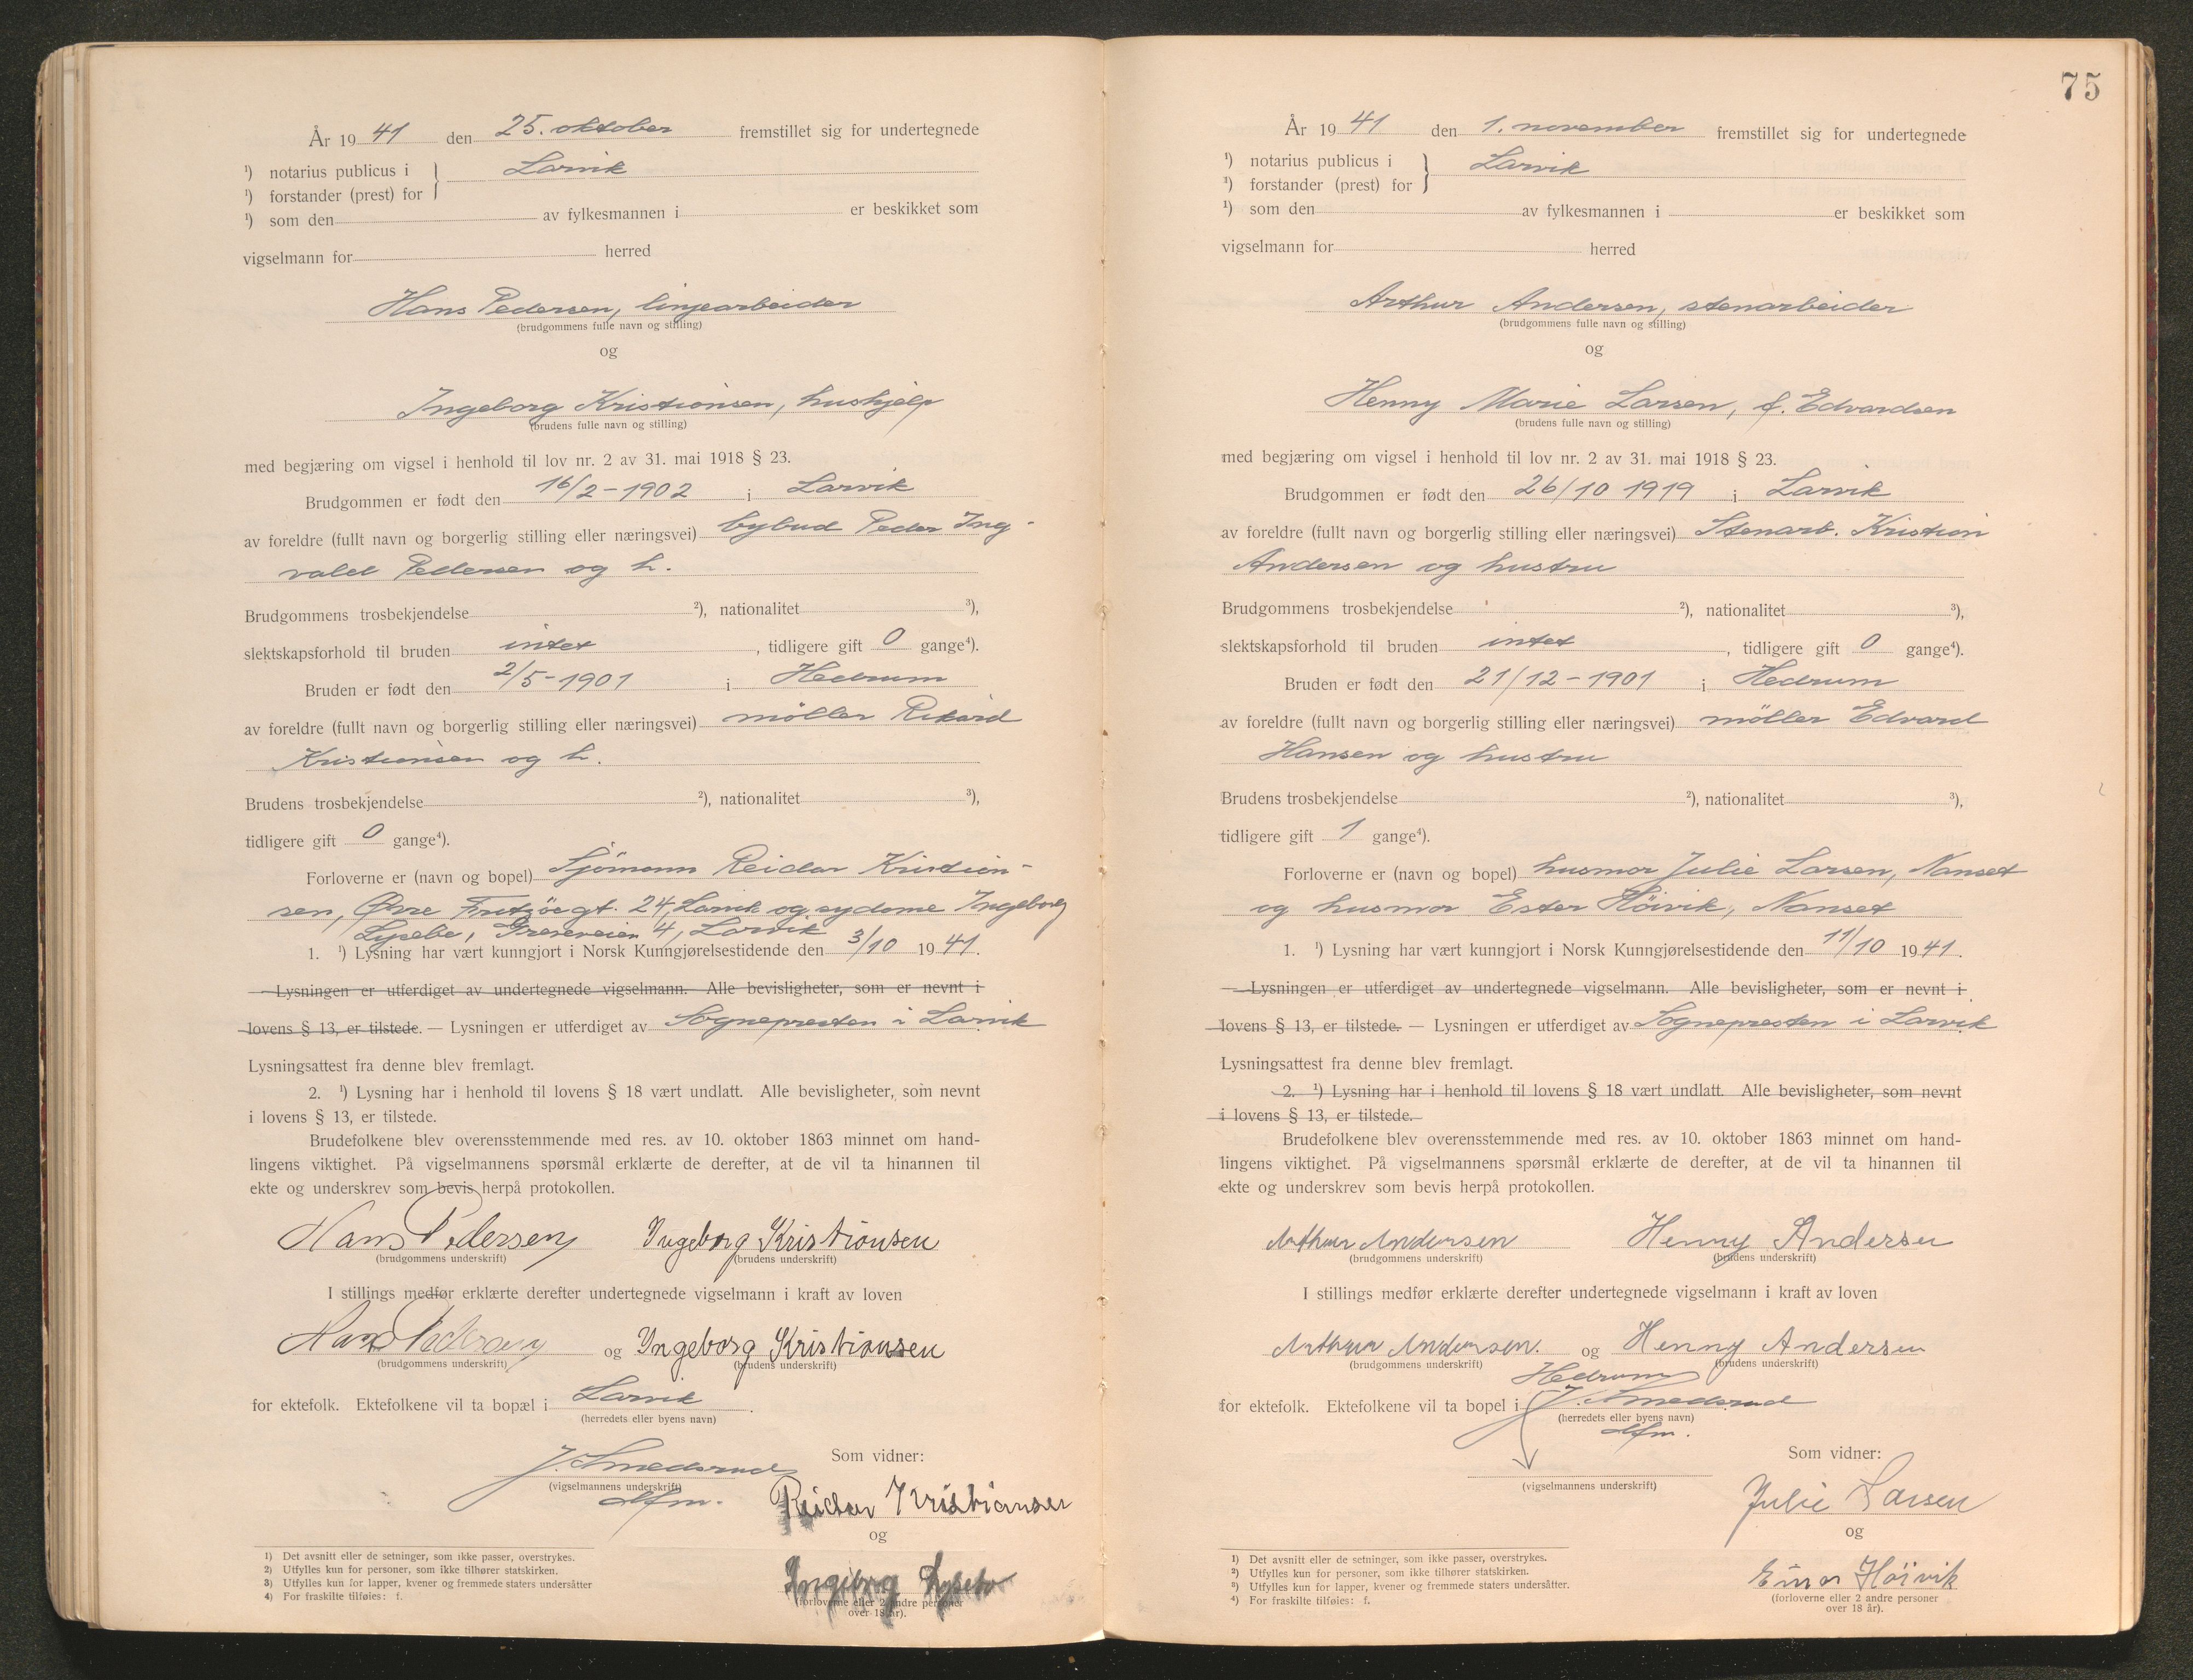 År 19 41 den 25. oktober fremstillet sig for undertegnede
¹) notarius publicus i } Larvik
¹) forstander (prest) for
¹) som den av fylkesmannen i er beskikket som
vigselmann for herred
Hans Pedersen, linjearbeider
(brudgommens fulle navn og stilling)
og
Ingeborg Kristiansen, hushjelp
(brudens fulle navn og stilling)
med begjæring om vigsel i henhold til lov nr. 2 av 31. mai 1918 § 23.
Brudgommen er født den 16/2-1902 i Larvik
av foreldre (fullt navn og borgerlig stilling eller næringsvei) bybud Peder Ing-
vald Pedersen og h.
Brudgommens trosbekjendelse ²), nationalitet ³),
slektskapsforhold til bruden intet, tidligere gift 0 gange⁴).
Bruden er født den 2/5-1901 i Hedrum
av foreldre (fullt navn og borgerlig stilling eller næringsvei) møller Rikard
Kristiansen og h.
Brudens trosbekjendelse ²), nationalitet ³),
tidligere gift 0 gange⁴).
Forloverne er (navn og bopel) Sjømann Reidar Kristian-
sen, Øvre Fritzøegt. 24, Larvik og sydame Ingeborg
Lysebo, 4, Larvik
1. ¹) Lysning har vært kunngjort i Norsk Kunngjørelsestidende den 3/10 19 41.
Lysningen er utferdiget av undertegnede vigselmann. Alle bevisligheter, som er nevnt i
lovens § 13, er tilstede. — Lysningen er utferdiget av Sognepresten i Larvik
Lysningsattest fra denne blev fremlagt.
2. ¹) Lysning har i henhold til lovens § 18 vært undlatt. Alle bevisligheter, som nevnt
i lovens § 13, er tilstede.
Brudefolkene blev overensstemmende med res. av 10. oktober 1863 minnet om hand-
lingens viktighet. På vigselmannens spørsmål erklærte de derefter, at de vil ta hinannen til
ekte og underskrev som bevis herpå protokollen.
Hans Pedersen Ingeborg Kristiansen
(brudgommens underskrift) (brudens underskrift)
I stillings medfør erklærte derefter undertegnede vigselmann i kraft av loven
Hans Pedersen og Ingeborg Kristiansen
(brudgommens underskrift) (brudens underskrift)
for ektefolk. Ektefolkene vil ta bopæl i Larvik.
(herredets eller byens navn)
J. Smedsrud
(vigselmannens underskrift)
Som vidner:
Reidar Kristiansen
og
Ingeborg Lysebo
(forloverne eller 2 andre personer
over 18 år).
1) Det avsnitt eller de setninger, som ikke passer, overstrykes.
2) Utfylles kun for personer, som ikke tilhører statskirken.
3) Utfylles kun for lapper, kvener og fremmede staters undersåtter
4) For fraskilte tilføies: f.
75
År 19 41 den 1. november fremstillet sig for undertegnede
¹) notarius publicus i } Larvik
¹) forstander (prest) for
¹) som den av fylkesmannen i er beskikket som
vigselmann for herred
Arthur Andersen, stenarbeider
(brudgommens fulle navn og stilling)
og
Henny Marie Larsen, f. Edvardsen
(brudens fulle navn og stilling)
med begjæring om vigsel i henhold til lov nr. 2 av 31. mai 1918 § 23.
Brudgommen er født den 26/10 1919 i Larvik
av foreldre (fullt navn og borgerlig stilling eller næringsvei) Stenarb. Kristian
Andersen og hustru
Brudgommens trosbekjendelse ²), nationalitet ³),
slektskapsforhold til bruden intet, tidligere gift 0 gange⁴).
Bruden er født den 21/12-1901 i Hedrum
av foreldre (fullt navn og borgerlig stilling eller næringsvei) møller Edvard
Hansen og hustru
Brudens trosbekjendelse ²), nationalitet ³),
tidligere gift 1 gange⁴).
Forloverne er (navn og bopel) husmor Julie Larsen, Nanset
og husmor Ester Høivik, Nanset
1. ¹) Lysning har vært kunngjort i Norsk Kunngjørelsestidende den 11/10 19 41.
Lysningen er utferdiget av undertegnede vigselmann. Alle bevisligheter, som er nevnt i
lovens § 13, er tilstede. — Lysningen er utferdiget av Sognepresten i Larvik
Lysningsattest fra denne blev fremlagt.
2. ¹) Lysning har i henhold til lovens § 18 vært undlatt. Alle bevisligheter, som nevnt
i lovens § 13, er tilstede.
Brudefolkene blev overensstemmende med res. av 10. oktober 1863 minnet om hand-
lingens viktighet. På vigselmannens spørsmål erklærte de derefter, at de vil ta hinannen til
ekte og underskrev som bevis herpå protokollen.
Arthur Andersen Henny Andersen
(brudgommens underskrift) (brudens underskrift)
I stillings medfør erklærte derefter undertegnede vigselmann i kraft av loven
Arthur Andersen. og Henny Andersen
(brudgommens underskrift) (brudens underskrift)
Hedrum
for ektefolk. Ektefolkene vil ta bopel i J. Smedsrud
(herredets eller byens navn)
Som vidner:
(vigselmannens underskrift)
Julie Larsen
og
Høivik
(forloverne eller 2 andre personer
over 18 år).
1) Det avsnitt eller de setninger, som ikke passer, overstrykes.
2) Utfylles kun for personer, som ikke tilhører statskirken.
3) Utfylles kun for lapper, kvener og fremmede staters undersåtter.
4) For fraskilte tilføies: f.